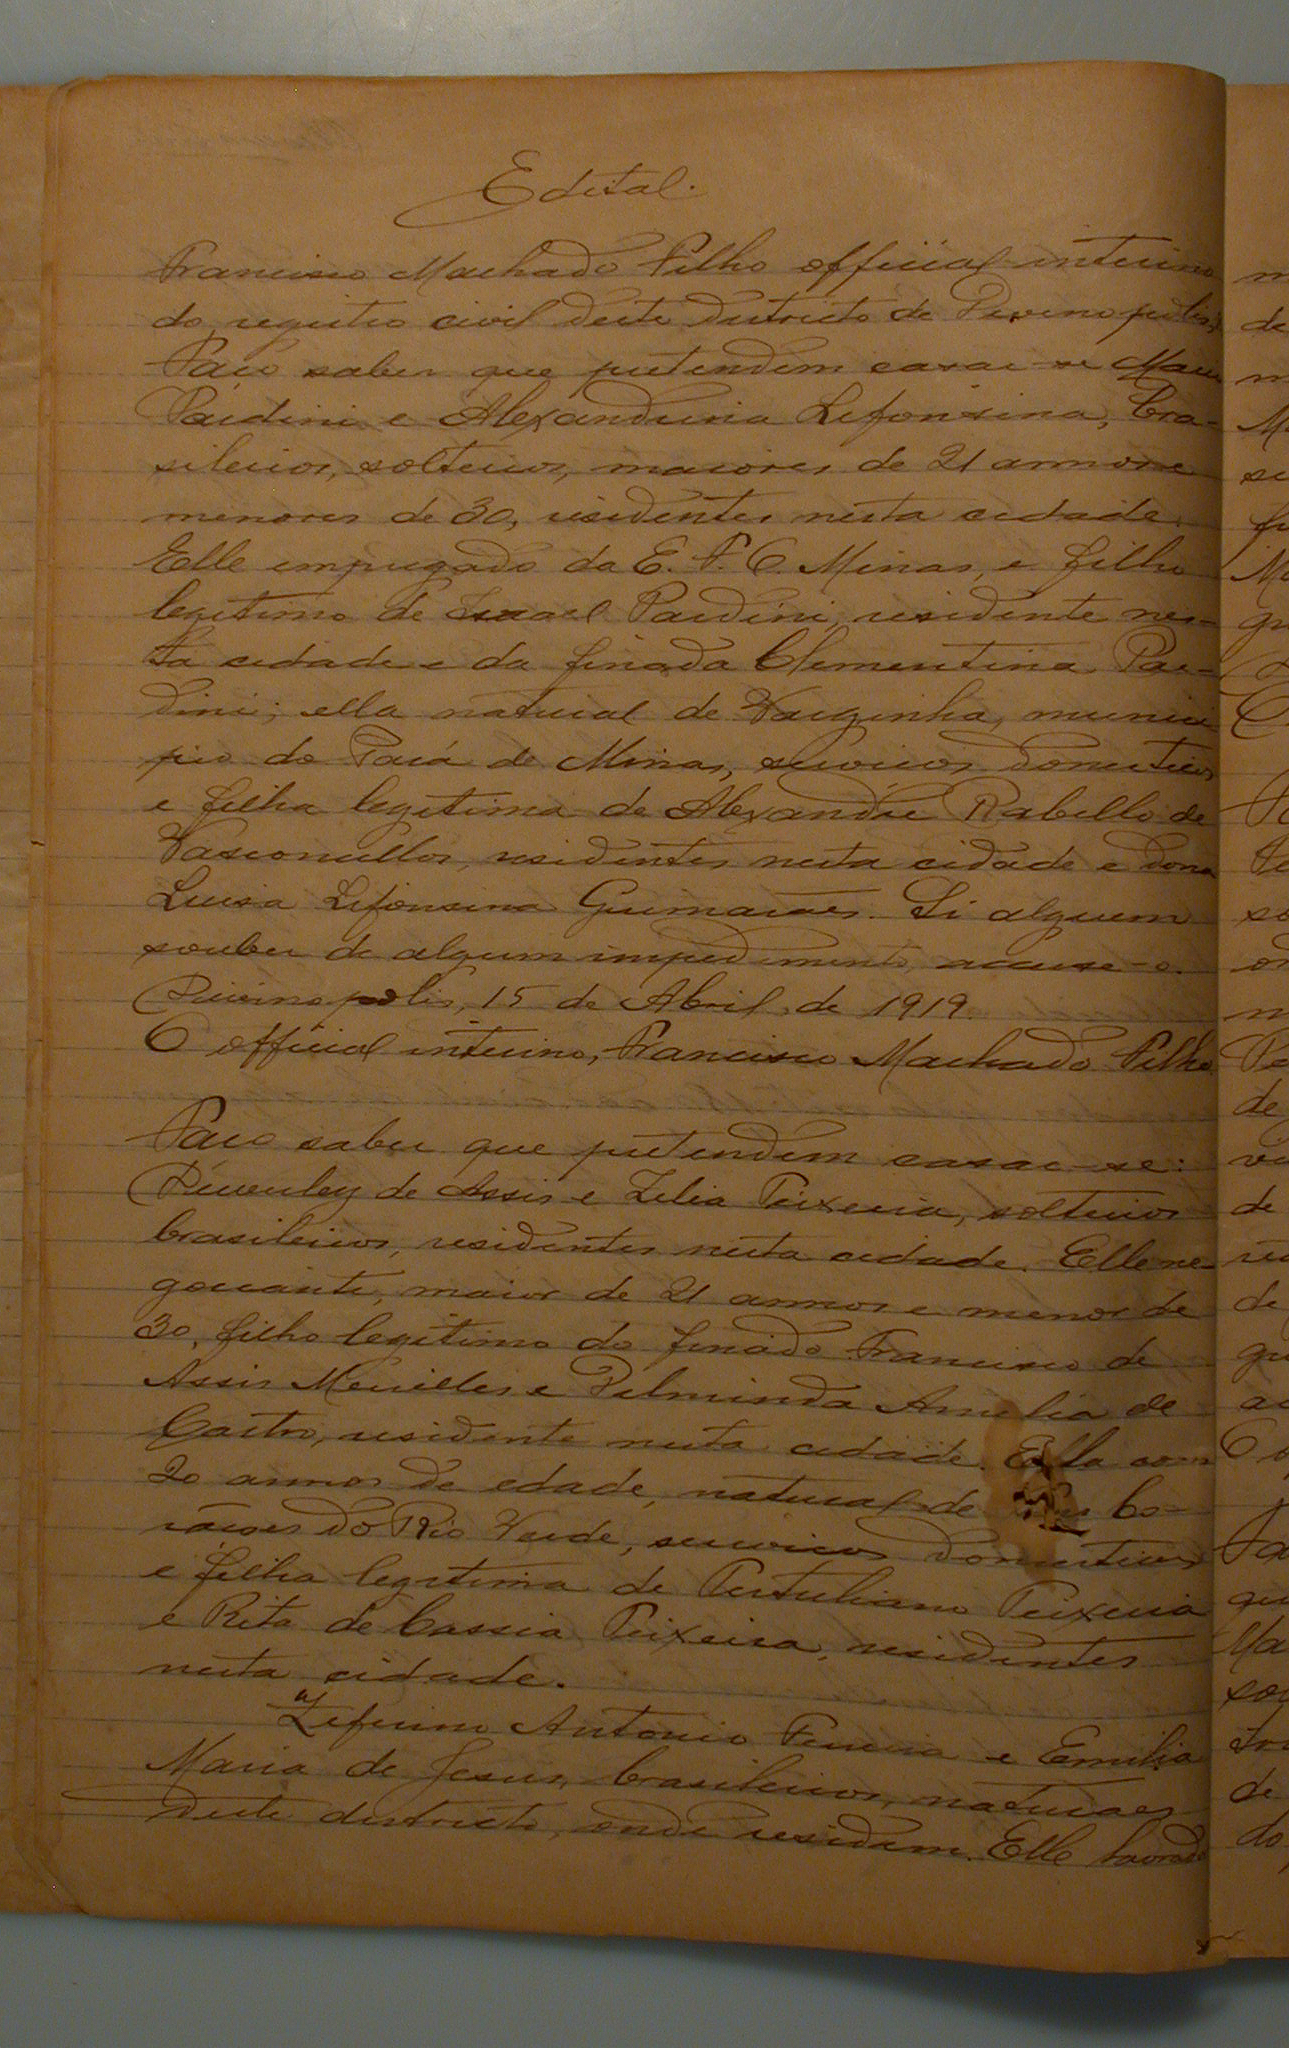 Edital.
Francisco Machado Filho official interino
do registro civil deste districto de Divinopolis,
Faço saber que pretendem casar-se Mario
Pardini e Alexandrina Lifonsina, bra-
sileiros, solteiros, maiores de 21 annos e
menores de 30, residentes nesta cidade.
Elle empregado da E. F. O. Minas, e filho
legitimo de Israel Pardini, residente nes-
ta cidade e da finada Clementina Par-
dini; ella natural de Varginha, munici
pio do Pará de Minas, serviços domesticos
e filha legitima de Alexandre Rabello de
Vasconcellos, residentes nesta cidade e dona
Luisa Lifonsina Guimarães. Si alguem
souber de algum impedimento, accuse-o.
Divinopolis, 15 de Abril de 1919.
O official interino, Francisco Machado Filho
Faço saber que pretendem casar-se:
de Assis e Zelia Teixeira, solteiros
brasileiros, residentes nesta cidade. Elle ne-
gociante, maior de 21 annos e menor de
30, filho legitimo do finado Francisco de
Assis Meirelles e Delminda Amelia de
Castro, residente nesta cidade. Ella com
20 annos de edade, natural de Co-
rações do Rio Verde, serviços domesticos
e filha legitima de Tertuliano Teixeira
e Rita de Cassia Teixeira, residentes
nesta cidade.
Zeferino Antonio Ferreira e Emilia
Maria de Jesus, brasileiros, naturaes
deste districto, onde residem. Elle lavrado